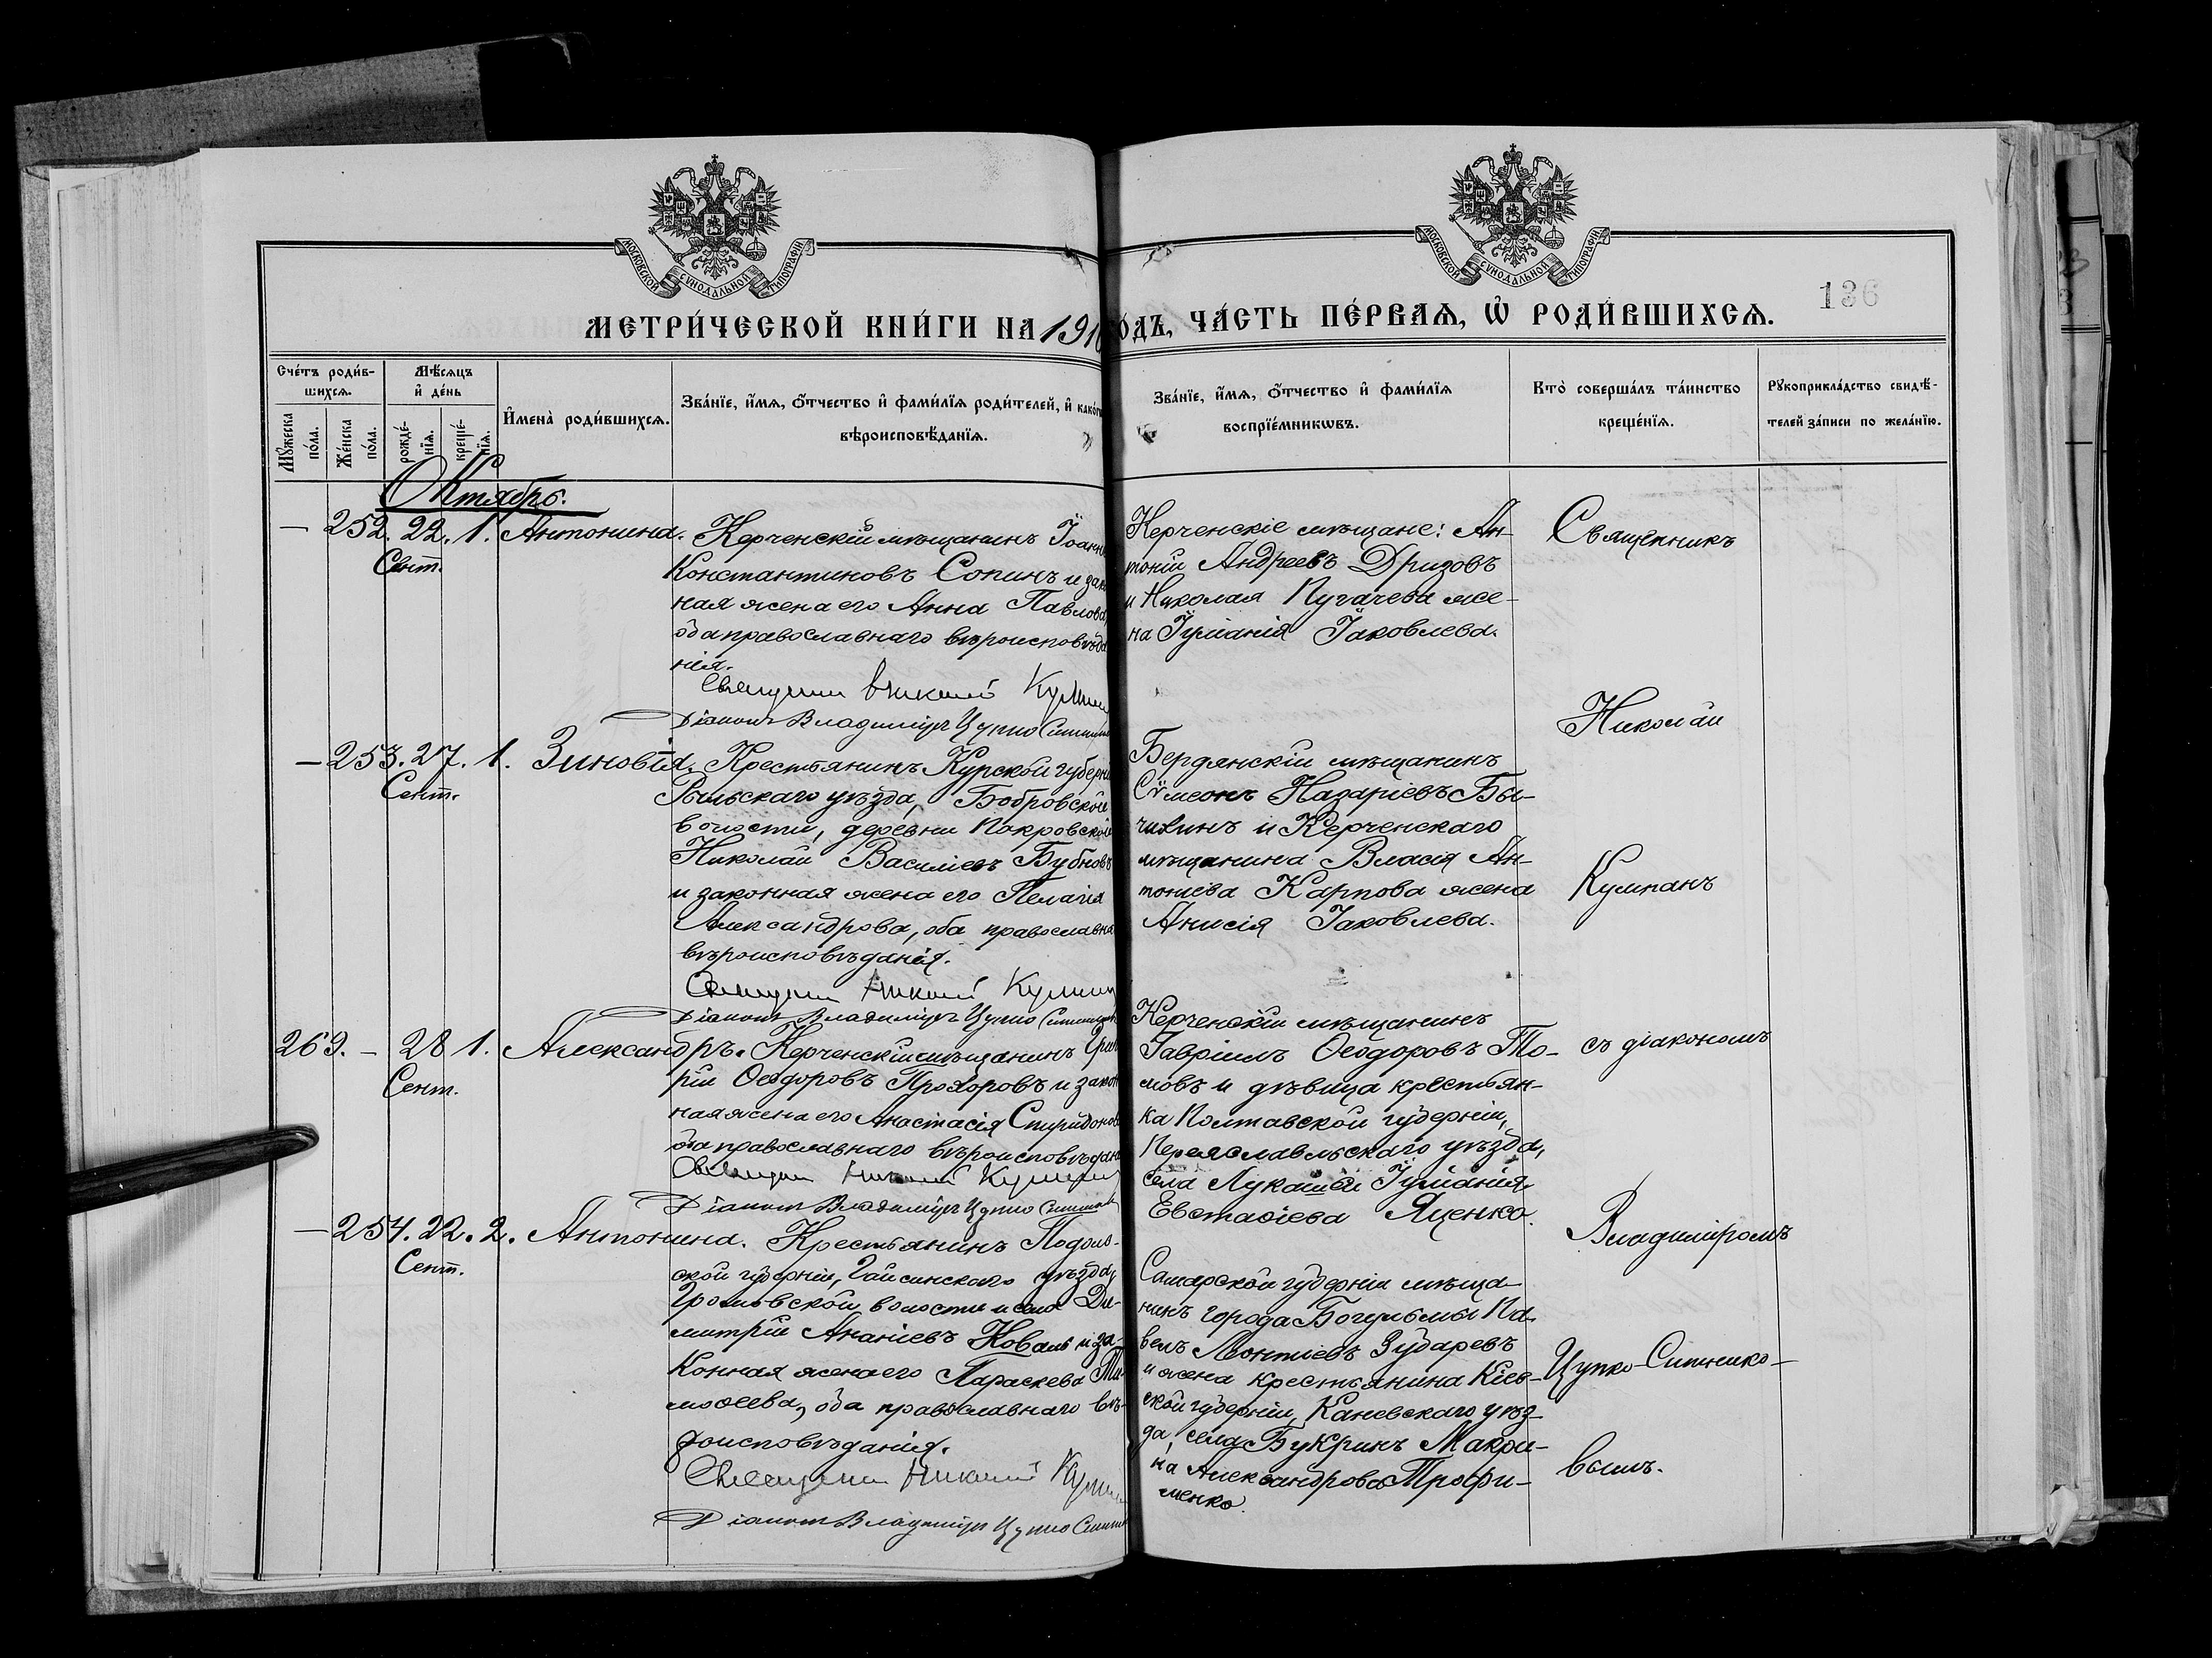 МОСКОВСКОЙ СѴНОДАЛЬНОЙ ТИПОГРАФІИ
МОСКОВСКОЙ СѴНОДАЛЬНОЙ ТИПОГРАФІИ
136
МЕТРИ́ЧЕСКОЙ КНИ́ГИ НА 1910
ОДЪ, ЧА́СТЬ ПЕ́РВАѦ, Ѡ҆ РОДИ́ВШИХСѦ.
Сче́тъ роди́в-
шихсѧ.
Мꙋ́жеска по́ла.
Же́нска по́ла.
Мѣ́сѧцъ
и҆ де́нь
рожде́-
нїѧ.
креще́-
нїѧ.
И҆мена̀ роди́вшихсѧ.
Зва́нїе, и҆́мѧ, ѻ҆́тчество и҆ фами́лїѧ роди́телей, и҆ како́гѡ
вѣроисповѣ́данїѧ.
Зва́нїе, и҆́мѧ, ѻ҆́тчество и҆ фами́лїѧ
воспрїе́мникѡвъ.
Кто̀ соверша́лъ та́инство
креще́нїѧ.
Рꙋкоприкла́дство свидѣ́-
телей за́писи по жела́нїю.
Октябрь.
— 252. 22. 1. Антонина.
Сент.
Керченскій мѣщанинъ Іоаннъ
Константиновъ Сопинъ и зако
ная жена его Анна Павлова,
оба православнаго вѣроисповѣда
нія.
Священникъ Николай Кулпан
Діаконъ Владиміръ Цупко Ситников
Керченскіе мѣщане: Ан-
тоній Андреевъ Дризовъ
и Николая Пугачева же-
на Іуліанія Іаковлева.
— 253. 27. 1. Зиновія.
Сент.
Крестьянинъ Курской губерніи
Рыльскаго уѣзда, Бобровской
волости, деревни Покровской
Николай Василіевъ Бубновъ
и законная жена его Пелагія
Александрова, оба православна
вѣроисповѣданія.
Священникъ Николай Кулпан
Діаконъ Владиміръ Цупко Ситников
Бердянскій мѣщанинъ
Сѵмеонъ Назаріевъ Бы-
чихинъ и Керченскаго
мѣщанина Власія Ан-
тоніева Карпова жена
Анисія Іаковлева.
269. — 28 1. Александръ.
Сент.
Керченскій мѣщанинъ Григо
рій Ѳеодоровъ Прохоровъ и закон
ная жена его Анастасія Спиридонова
оба православнаго вѣроисповѣдан
Священникъ Николай Кулпан
Діаконъ Владиміръ Цупко Ситников
Керченскій мѣщанинъ
Гавріилъ Ѳеодоровъ То-
мовъ и дѣвица крестьян-
ка Полтавской губерніи,
Переяславльскаго уѣзда,
села Лукашей Іуліанія
Евстаѳіева Яценко.
— 254. 22. 2. Антонина.
Сент.
Крестьянинъ Подоль-
ской губерніи, Гайсинскаго уѣзда,
волости и села Ди-
митрій Ананіевъ Коваль и за-
конная жена его Параскева Ти-
моѳеева, оба православнаго вѣ-
роисповѣданія.
Священникъ Николай Кулпан
Діаконъ Владиміръ Цупко Ситник
Самарской губерніи мѣща-
нинъ города Богульмы Па-
велъ Леонтіевъ Зударевъ
и жена крестьянина Кіев-
ской губерніи, Каневскаго уѣз-
да, села Букринъ Макри-
на Александрова Трофи-
менко.
Священникъ
Николай
Кулпанъ
съ діакономъ
Владиміромъ
Цупко-Ситнико-
вымъ.